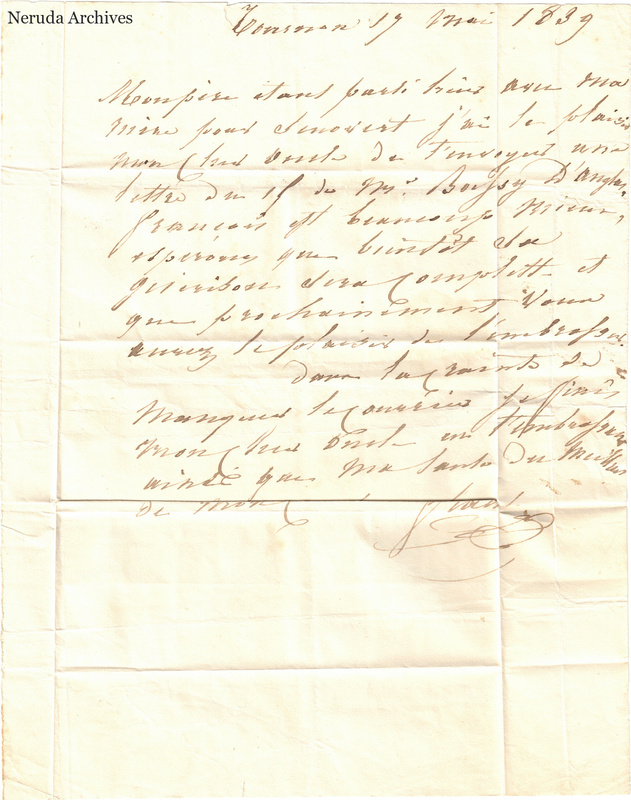 Neruda Archives
Tournon 17 Mai 1839
Mon père étant parti hier avec ma
mère pour j'ai le plaisir
mon cher oncle de t'envoyer une
lettre du 15 de Mr. Boissy D'anglas,
françois est beaucoup mieux,
espérons que bientôt sa
guérison sera complette et
que prochainement vous
aurez le plaisir de l'embrasser.
dans la crainte de
manquer le courrier je finis
mon cher oncle en t'embrassant
ainsi que ma tante du meilleur
de mon